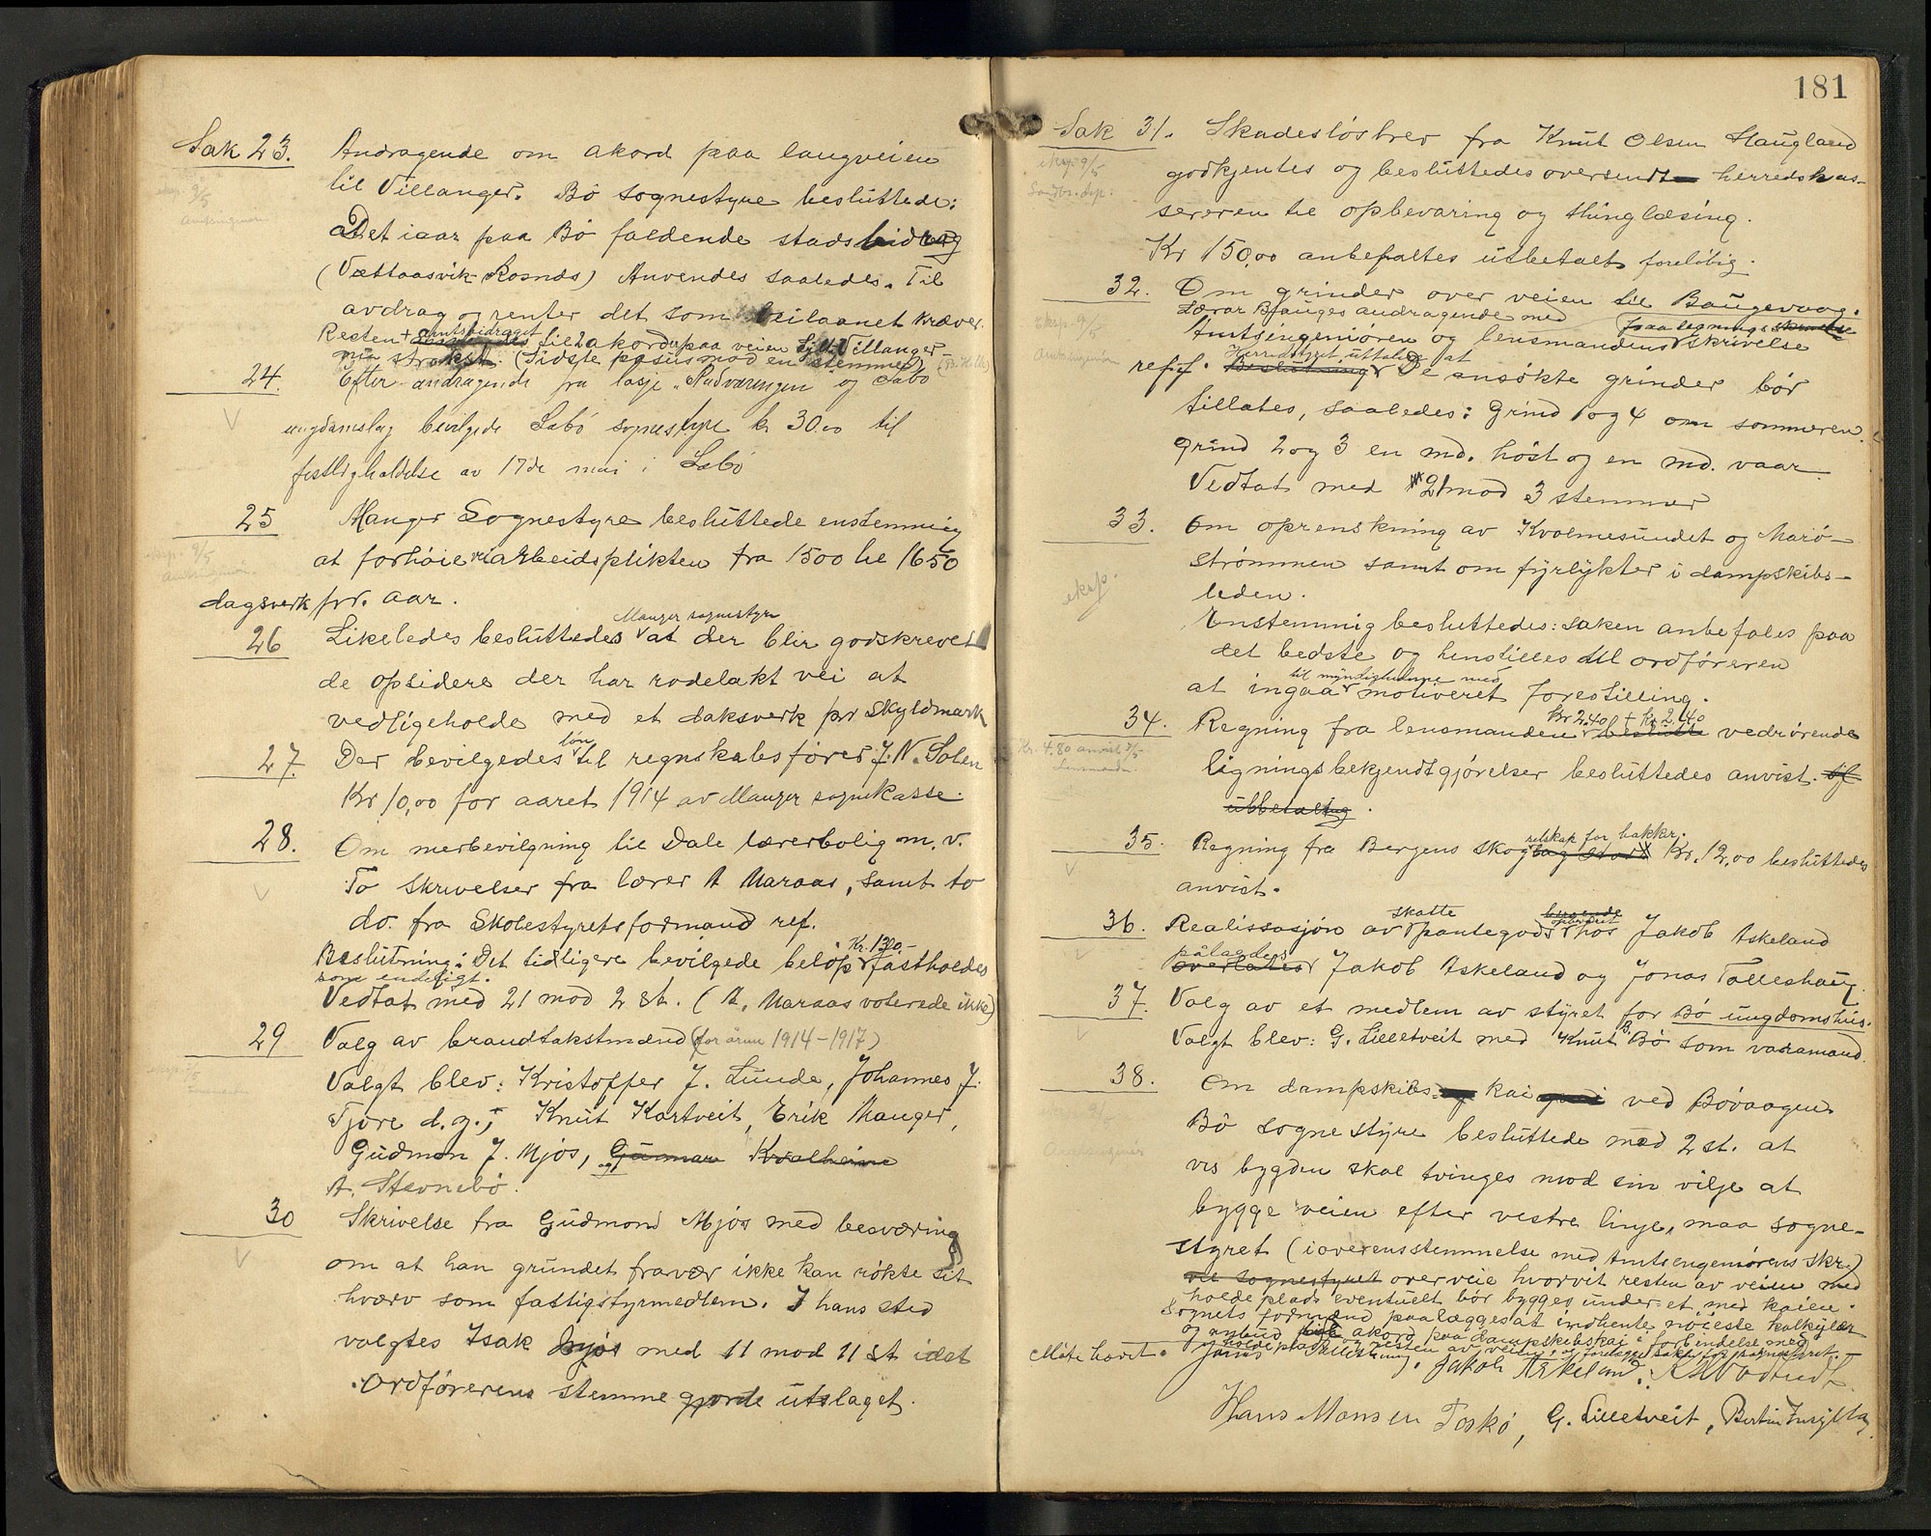 Sak 23. Andragende om akord paa langveien
til Villanger. Bö sognestyre besluttede:
at Det iaar paa Bö faldende stadsbidrag
(Vættaasvik-Rosnds) Anvendes saaledes. Til
avdrag og renter det som veilaanet kræver.
Resten + amtsbidraget til akord paa veien Villanger
(Sidste passus mod en stemme)
24. Efter andragende fra losje "Nadværingen" og Sæbö
ungdomslag bevilgede Sæbö sognestyre kr 30.00 til
festligholdelse av 17de mai i Sæbö
25 Manger Sognestyre besluttede enstemmig
at forhöie veiarbeidsplikten fra 1500 til 1650
dagsverk pr. aar.
Manger sognestyre
26 Likeledes besluttedes at der blir godskrevet
de opsidere der har rodelakt vei at
vedligeholde med et daksverk pr Skyldmark
27. Der bevilgedes lön til regnskabsförer J. N. Solen
Kr 10,00 for aaret 1914 av Manger sognekasse.
28. Om merbevilgning til Dale lærerbolig m. v.
To skrivelser fra lærer A Maraas, samt to
do. fra Skolestyrets formand ref.
Beslutning: Det tidligere bevilgede belöp Kr. 1300.- fastholdes
som endeligt.
Vedtat med 21 mod 2 st. (A. Maraas voterede ikke)
29 Valg av brandtakstmænd (for årene 1914-1917)
Valgt blev: Kristoffer J. Lunde, Johannes J.
Tjore d. y., Knut Kartveit, Erik Manger,
Gudmon J. Mjös, og Gunnar Kvalheim
A. Stevnebö.
30 Skrivelse fra Gudmond Mjös med besværing
om at han grundet fravær ikke kan rökte sit
hværv som fattigstyrmedlem. I hans sted
valgtes Isak Mjös med 11 mod 11 st idet
Ordförerens stemme gjorde utslaget.
181
Sak 31. Skadeslösbrev fra Knut Olsen Haugland
eksp. 9/5
godkjentes og besluttedes oversendt herredskas-
sereren til opbevaring og thinglæsing.
Kr 150,00 anbefaltes utbetalt forelöbig.
32. Om grinder over veien til Baugevaag.
Lærar Bjauges andragende med
Amtsingeniören og lensmandens skrivelse
ref. Beslutning Herredsstyret uttaler at De ansökte grinder bör
tillates, saaledes: Grind 1 og 4 om sommeren.
grind 2 og 3 en md. höst og en md. vaar
Vedtat med 21 mod 3 stemmer
33. Om oprenskning av Kvolmesundet og Marö-
strömmen samt om fyrlykter i dampskibs-
leden.
eksp.
Enstemmig besluttedes: saken anbefales paa
det bedste og henstilles til ordföreren
til myndigheterne med
at ingaa motiveret forestilling.
34. Regning fra lensmanden Kr 2.40 + Kr 2.40 vedrörende
Kr. 4.80 anvist
ligningsbekjendtgjörelser besluttedes anvist. til
utbetaling.
35. Regning fra Bergens skogselskap for bakkr. Kr. 12,00 besluttedes
anvist.
36. Realissasjon av skatte pantegods hos Jakob Askeland
pålægdes overlates Jakob Askeland og Jonas Tolleshaug.
37. Valg av et medlem av styret for Bö ungdomshus.
Valgt blev: G. Lilletveit med Knut B. Bö som varamand.
38. Om dampskibskai ved Bövaagen
Bö sognestyre besluttede med 2 st. at
vis bygden skal tvinges mod sin vilje at
bygge veien efter vestre linje, maa sogne-
styret (i overensstemmelse med Amtsengeniørens skr.)
vil sognestyret overveie hvorvit resten av veien med
holdeplads eventuelt bör bygges under et med kaien.
Sognets formand paalægges at indhente nöieste kalkyler
og anbud paa akord paa dampskibskai i forbindelse med
holdeplads og resten av veien
Möte hævet. Jakob Askeland.
Hans Monsen Toskö, G. Lilletveit,